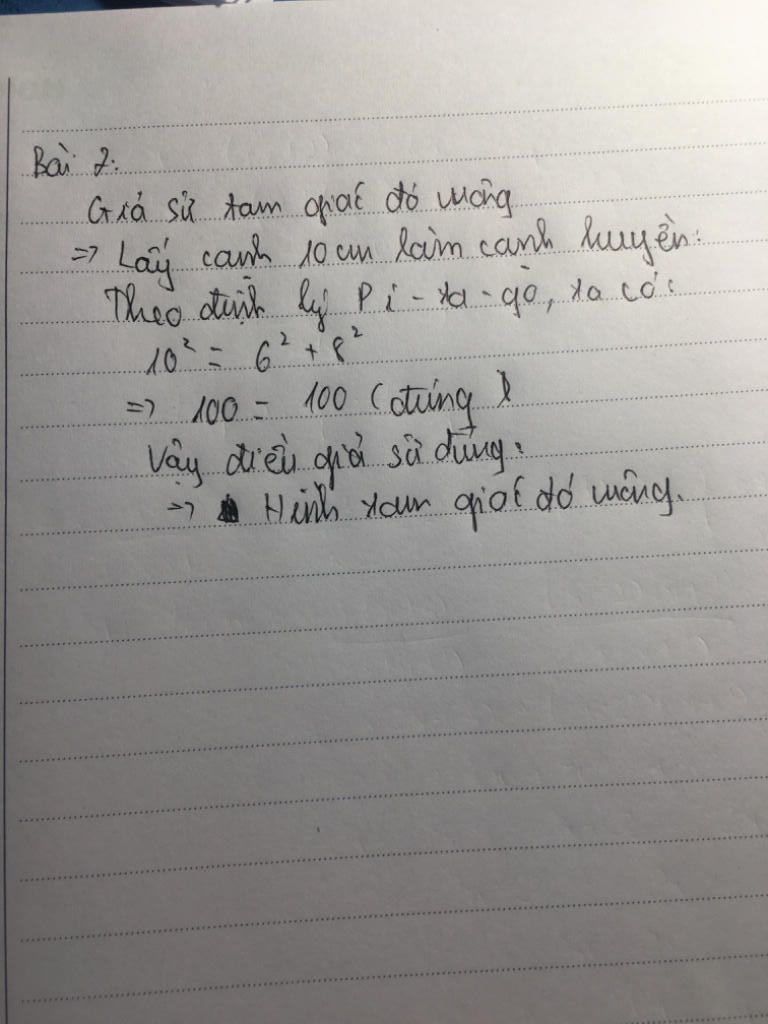 Bài 2:
Giả sử tam giác đó vuông
=> Lấy cạnh 10 cm làm cạnh huyền:
Theo định lý Pi-ta-go, ta có:
10² = 6² + 8²
=> 100 = 100 (đúng)
Vậy điều giả sử đúng:
=> Hình tam giác đó vuông.